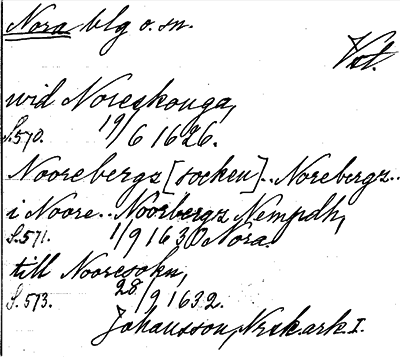 Nora blg o. sn.
Vstl.
wid Noreskouga,
S. 570. 19/6 1626.
Noorebergz [socken].. Norebergz..
i Noore.. Noorbergz Nempdh,
S. 571. 1/9 1630 Nora.
till Nooresokn,
S. 573. 28/9 1632.
Johansson, Nesk.ark. I.